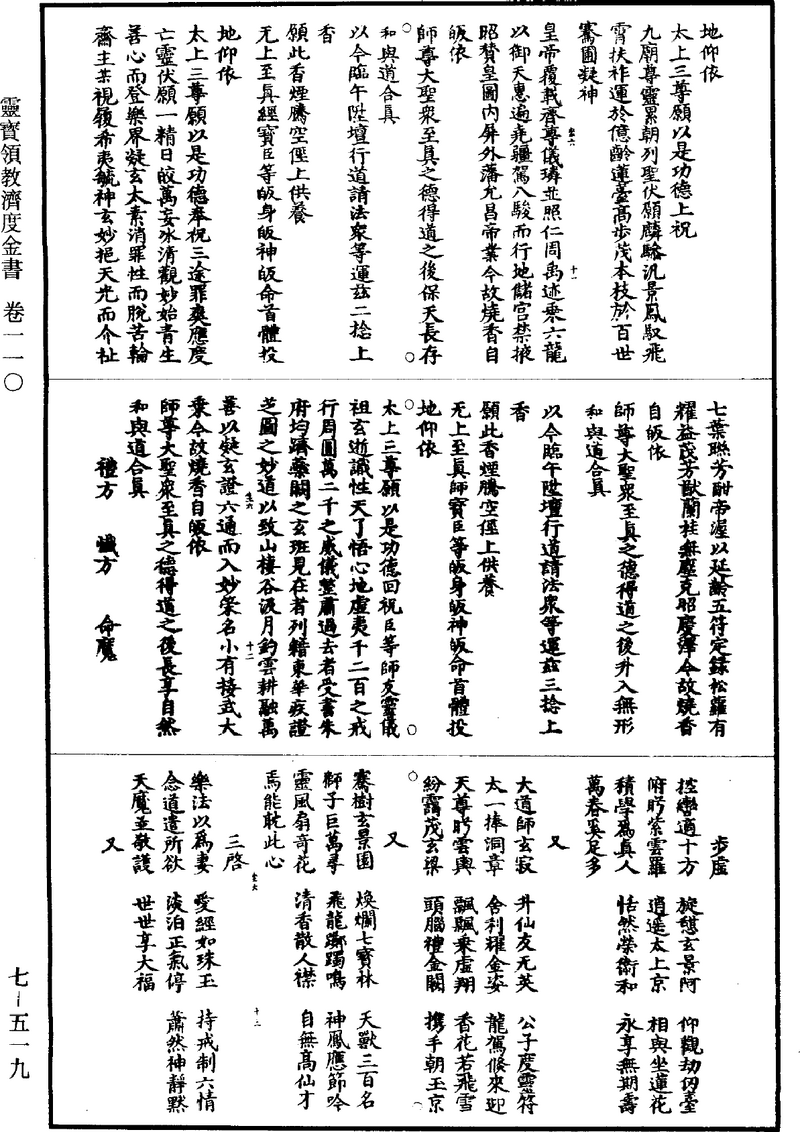 地仰依
太上三尊願以是功德上祝
九廟尊靈累朝列聖伏願麟驂汎景鳳馭飛
霄扶祚運於億齡蓮臺高步茂本枝於百世
騫圃凝神
皇帝覆載齊尊儀璘並照仁周禹迹乘六龍
以御天惠遍堯疆駕八駿而行地儲宫禁掖
昭贊皇圖内屏外藩尤昌帝業今故燒香自
皈依
師尊大聖衆至真之德得道之後保天長存
和與道合真
以今臨午陞壇行道請法衆等運兹二捻上
香
願此香煙騰空徑上供養
无上至真經寶臣等皈身皈神皈命首體投
地仰依
太上三尊願以是功德奉祝三途罪爽應度
亡靈伏願一精日皎萬妄冰清觀妙始青生
善心而登樂界凝玄太素消罪性而脱苦輪
齋主某視履希夷毓神玄妙挹天光而介祉
七葉聯芳酣帝渥以延齡五符定籙松蘿有
耀益茂芳猷蘭桂無塵克昭慶澤今故燒香
自皈依
師尊大聖衆至真之德得道之後升入無形
和與道合真
以今臨午陞壇行道請法衆等運兹三捻上
香
願此香煙騰空徑上供養
无上至真師寶臣等皈身皈神皈命首體投
地仰依
太上三尊願以是功德回祝臣等師友靈儀
祖玄逝識性天了悟心地虚夷千二百之戒
行周圓萬二千之威儀整肅過去者受書朱
府均躋藥闕之玄班見在者列籍東華疾證
芝圖之妙道以致山棲谷汲月釣雲耕融萬
善以凝玄證六通而入妙策名小有接武大
乘今故燒香自皈依
師尊大聖衆至真之德得道之後長享自然
和與道合真
禮方 懺方 命魔
步虚
控轡適十方 旋憩玄景阿 仰觀劫仞臺
俯眄紫雲羅 逍遥太上京 相與坐蓮花
積學爲真人 恬然榮衛和 永享無期壽
萬春奚足多
又
大道師玄寂 升仙友无英 公子度靈符
太一捧洞章 舍利耀金姿 龍駕倏來迎
天尊眄雲輿 飄飄乘虚翔 香花若飛雪
紛靄茂玄梁 頭腦禮金闕 携手朝玉京
又
騫樹玄景園 焕爛七寶林 天獸三百名
獅子巨萬尋 飛龍躑躅鳴 神鳳應節吟
靈風扇奇花 清香散人襟 自無高仙才
焉能耽此心
三啓
樂法以爲妻 愛經如珠玉 持戒制六情
念道遣所欲 淡泊正氣停 蕭然神靜默
天魔並敬護 世世享大福
又
靈寶領教濟度金書 卷一一〇
七-五一九